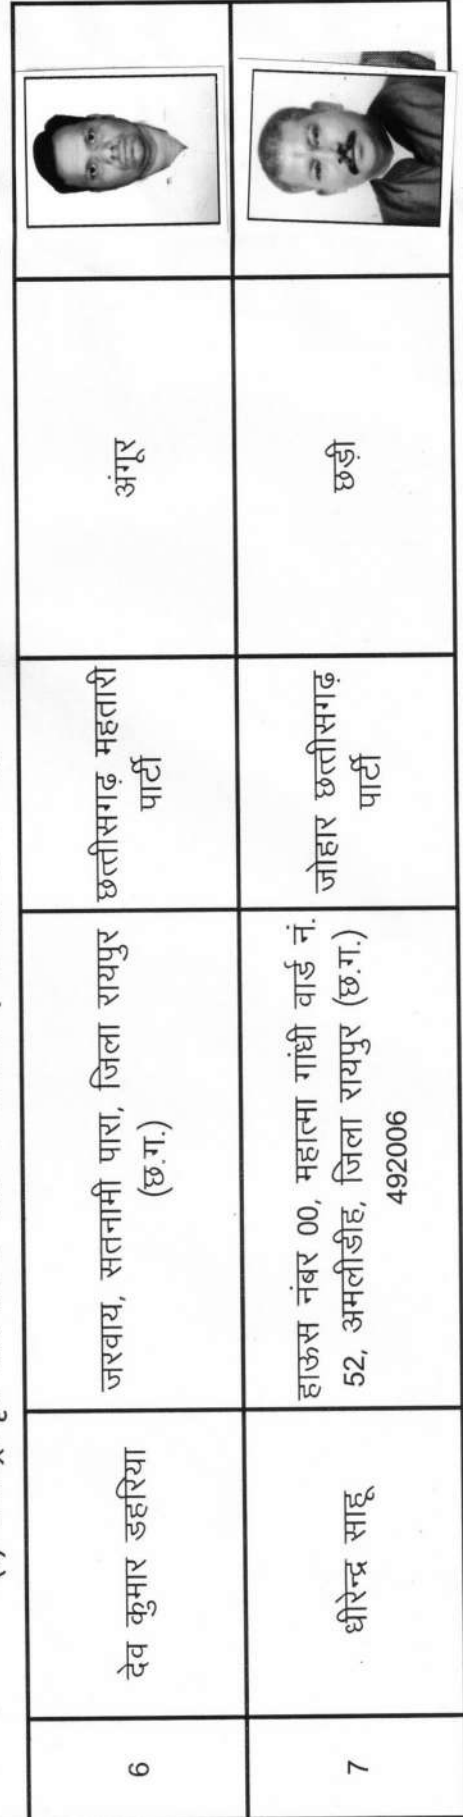 6
देव कुमार डहरिया
जरवाय, सतनामी पारा, जिला रायपुर
(छ.ग.)
छत्तीसगढ़ महतारी
पार्टी
अंगूर
7
धीरेन्द्र साहू
हाऊस नंबर 00, महात्मा गांधी वार्ड नं.
52, अमलीडीह, जिला रायपुर (छ.ग.)
492006
जोहार छत्तीसगढ़
पार्टी
छड़ी